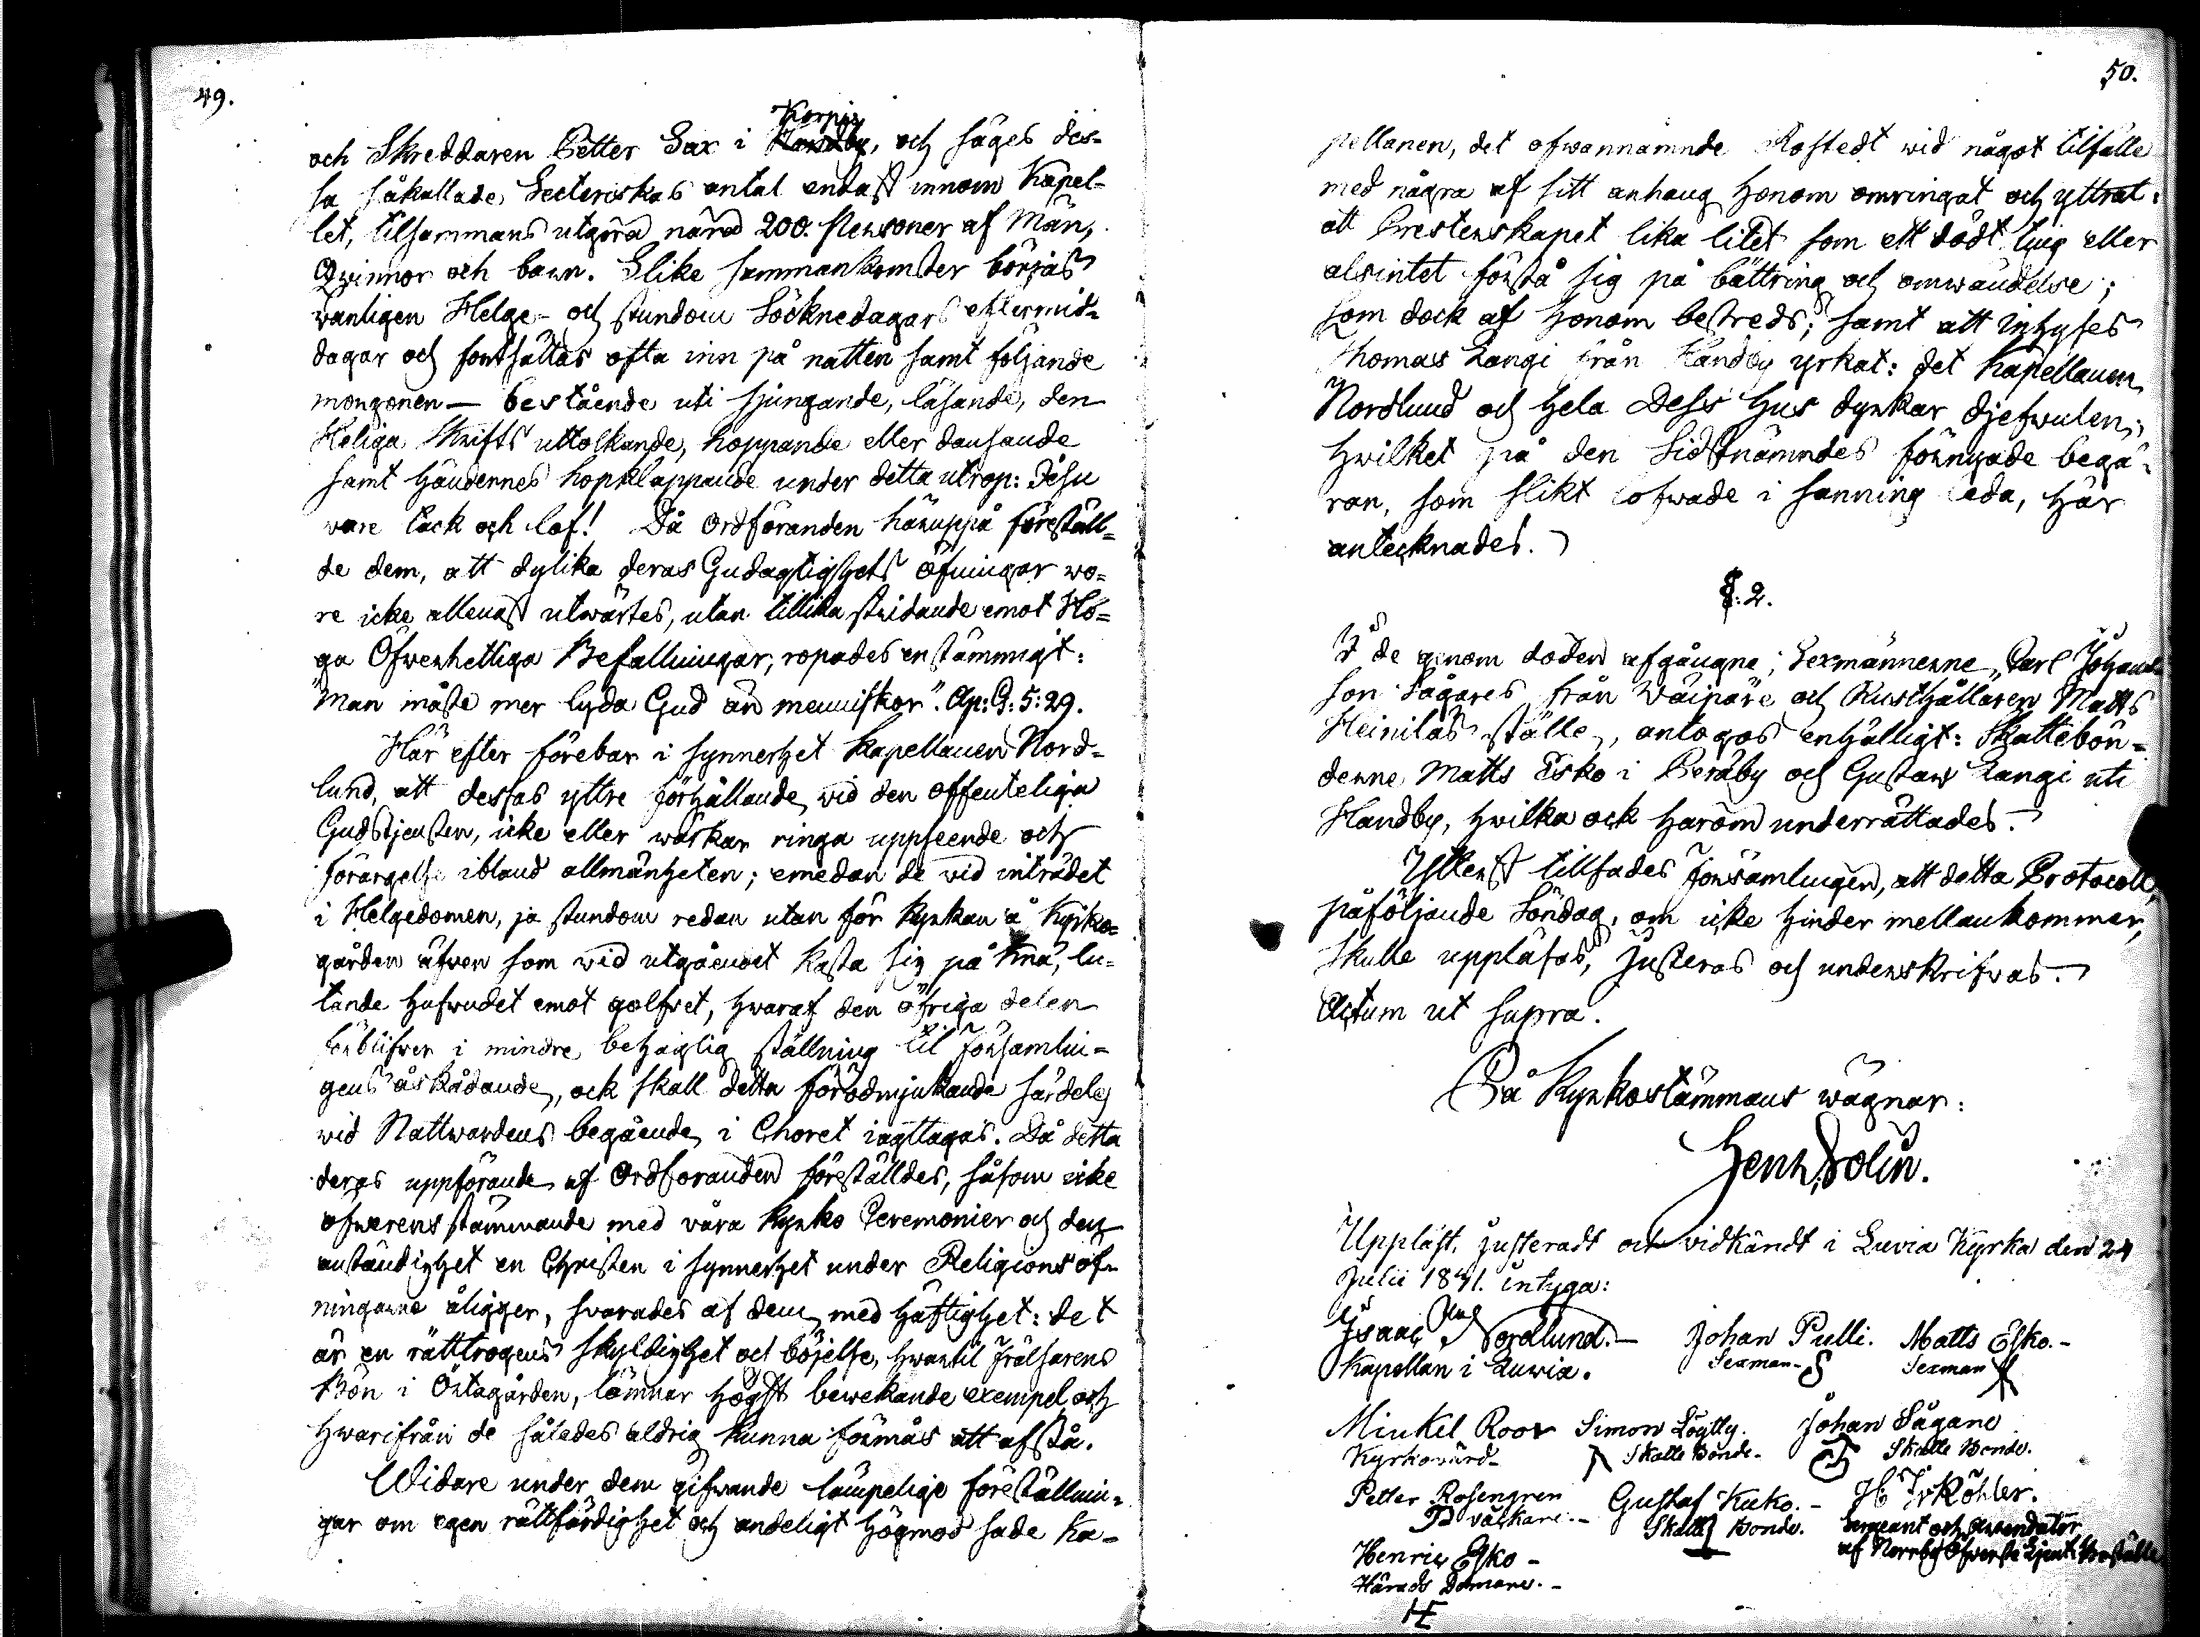 49.
Korpis
och Skreddaren Petter Sax i Handby, och säges des-
sa såkallade Secteriskas antal endast innom Kapel-
let, tilsammans utgöra nära 200. Personer af Män,
Qvinnor och barn. Slike sammankomster börjas
vanligen Helge- och stundom Söcknedagars eftermid-
dagar och fortsättas ofta inn på natten samt följande
morgonen — bestående uti sjungande, läsande, den
Heliga Skrifts uttolkande, hoppande eller dansande
samt händernes hopklappande under detta utrop: Jesu
vare tack och lof! Då Ordföranden häruppå föreställ-
de dem, att dylika deras Gudagtighets öfningar wo-
re icke allenast utwärtes, utan tillika stridande emot Hö-
ga Öfwerhetliga Befallningar, ropades enstämmigt:
"Man måste mer lyda Gud än menniskor". Ap: G: 5: 29.
Här efter förebar i synnerhet Kapellanen Nord-
lund, att dessas yttre förhållande wid den offenteliga
Gudstjensten, icke eller wäckar ringa uppseende och
förargelse ibland allmänheten; emedan de vid inträdet
i Helgedomen, ja stundom redan utan för Kyrkan å Kyrko-
gården äfven som wid utgåendet kasta sig på knä, lu-
tande hufwudet emot golfvet, hwaraf den öfriga delen
förblifver i mindre behaglig ställning til Församlin-
gens åskådande, ock skall detta förödmjukande särdeles
wid Nattwardens begående i Choret iagttagas. Då detta
deras uppförande af Ordföranden föreställdes, såsom icke
öfverensstämmande med våra Kyrko Ceremonier och den
anständighet en Christen i synnerhet under Religions öf-
ningarne åligger, svarades af dem med häftighet: det
är en rättrogens skyldighet och böjelse, hwartil Frälsarens
Bön i Örtagården, lämnar högst bewekande exempel och
hwarifrån de således aldrig kunna förmås att afstå.
Widare under dem gifwande lämpelige föreställnin-
gar om egen rättfärdighet och andeligt högmod sade Ka-
50.
pellanen, det ofwannämnde Rostedt wid något tilfälle
med några af sitt anhang honom omringat och yttrat:
att Presterskapet lika litet som ett dödt ting eller
alsintet förstå sig på bättring och omwändelse;
som dock af honom bestreds; samt att Inhyses
Thomas Langi från Handby yrkat: det Kapellanen
Nordlund och hela Dess Hus dyrkar djefwulen;
Hwilket på den Sidstnämndes förnyade begä-
ran, som slikt lofwade i sanning leda, här
antecknades.
§. 2.
I de genom döden afgångne; Sexmännerne, Carl Johans-
son Sågares från Wäipäre och Rusthållaren Matts
Heinilas ställe, antogos enhälligt: Skattebön-
derne Matts Esko i Peräby och Gustaw Langi uti
Handby, hwilka ock härom underrättades.
Ytterst tillsades Församlingen, att detta Protocoll,
påföljande Söndag, om icke hinder mellankommer,
skulle uppläsas, Justeras och underskrifvas.
Actum ut supra.
På Kyrkostämmans wägnar:
Henr. Solin.
Uppläst, justeradt och vidkändt i Luvia Kyrka den 24
Julii 1841. intyga:
Isaac Nordlund.— Johan Pulli. Matts Esko.-
Kapellan i Luwia. Sexman- Sexman
Michel Roos Simon Löytty. Johan Sågare
Kyrkovärd- Skatte Bonde- Skatte Bonde.
Petter Rosengren Gustaf Kuko.- H Fr Köhler.
väckare.- Skatte Bonde. Sergeant och Arrendator
af Norrby Öfverste Ljeut: Boställe
Henric Esko-
Härads Domare.-
HE